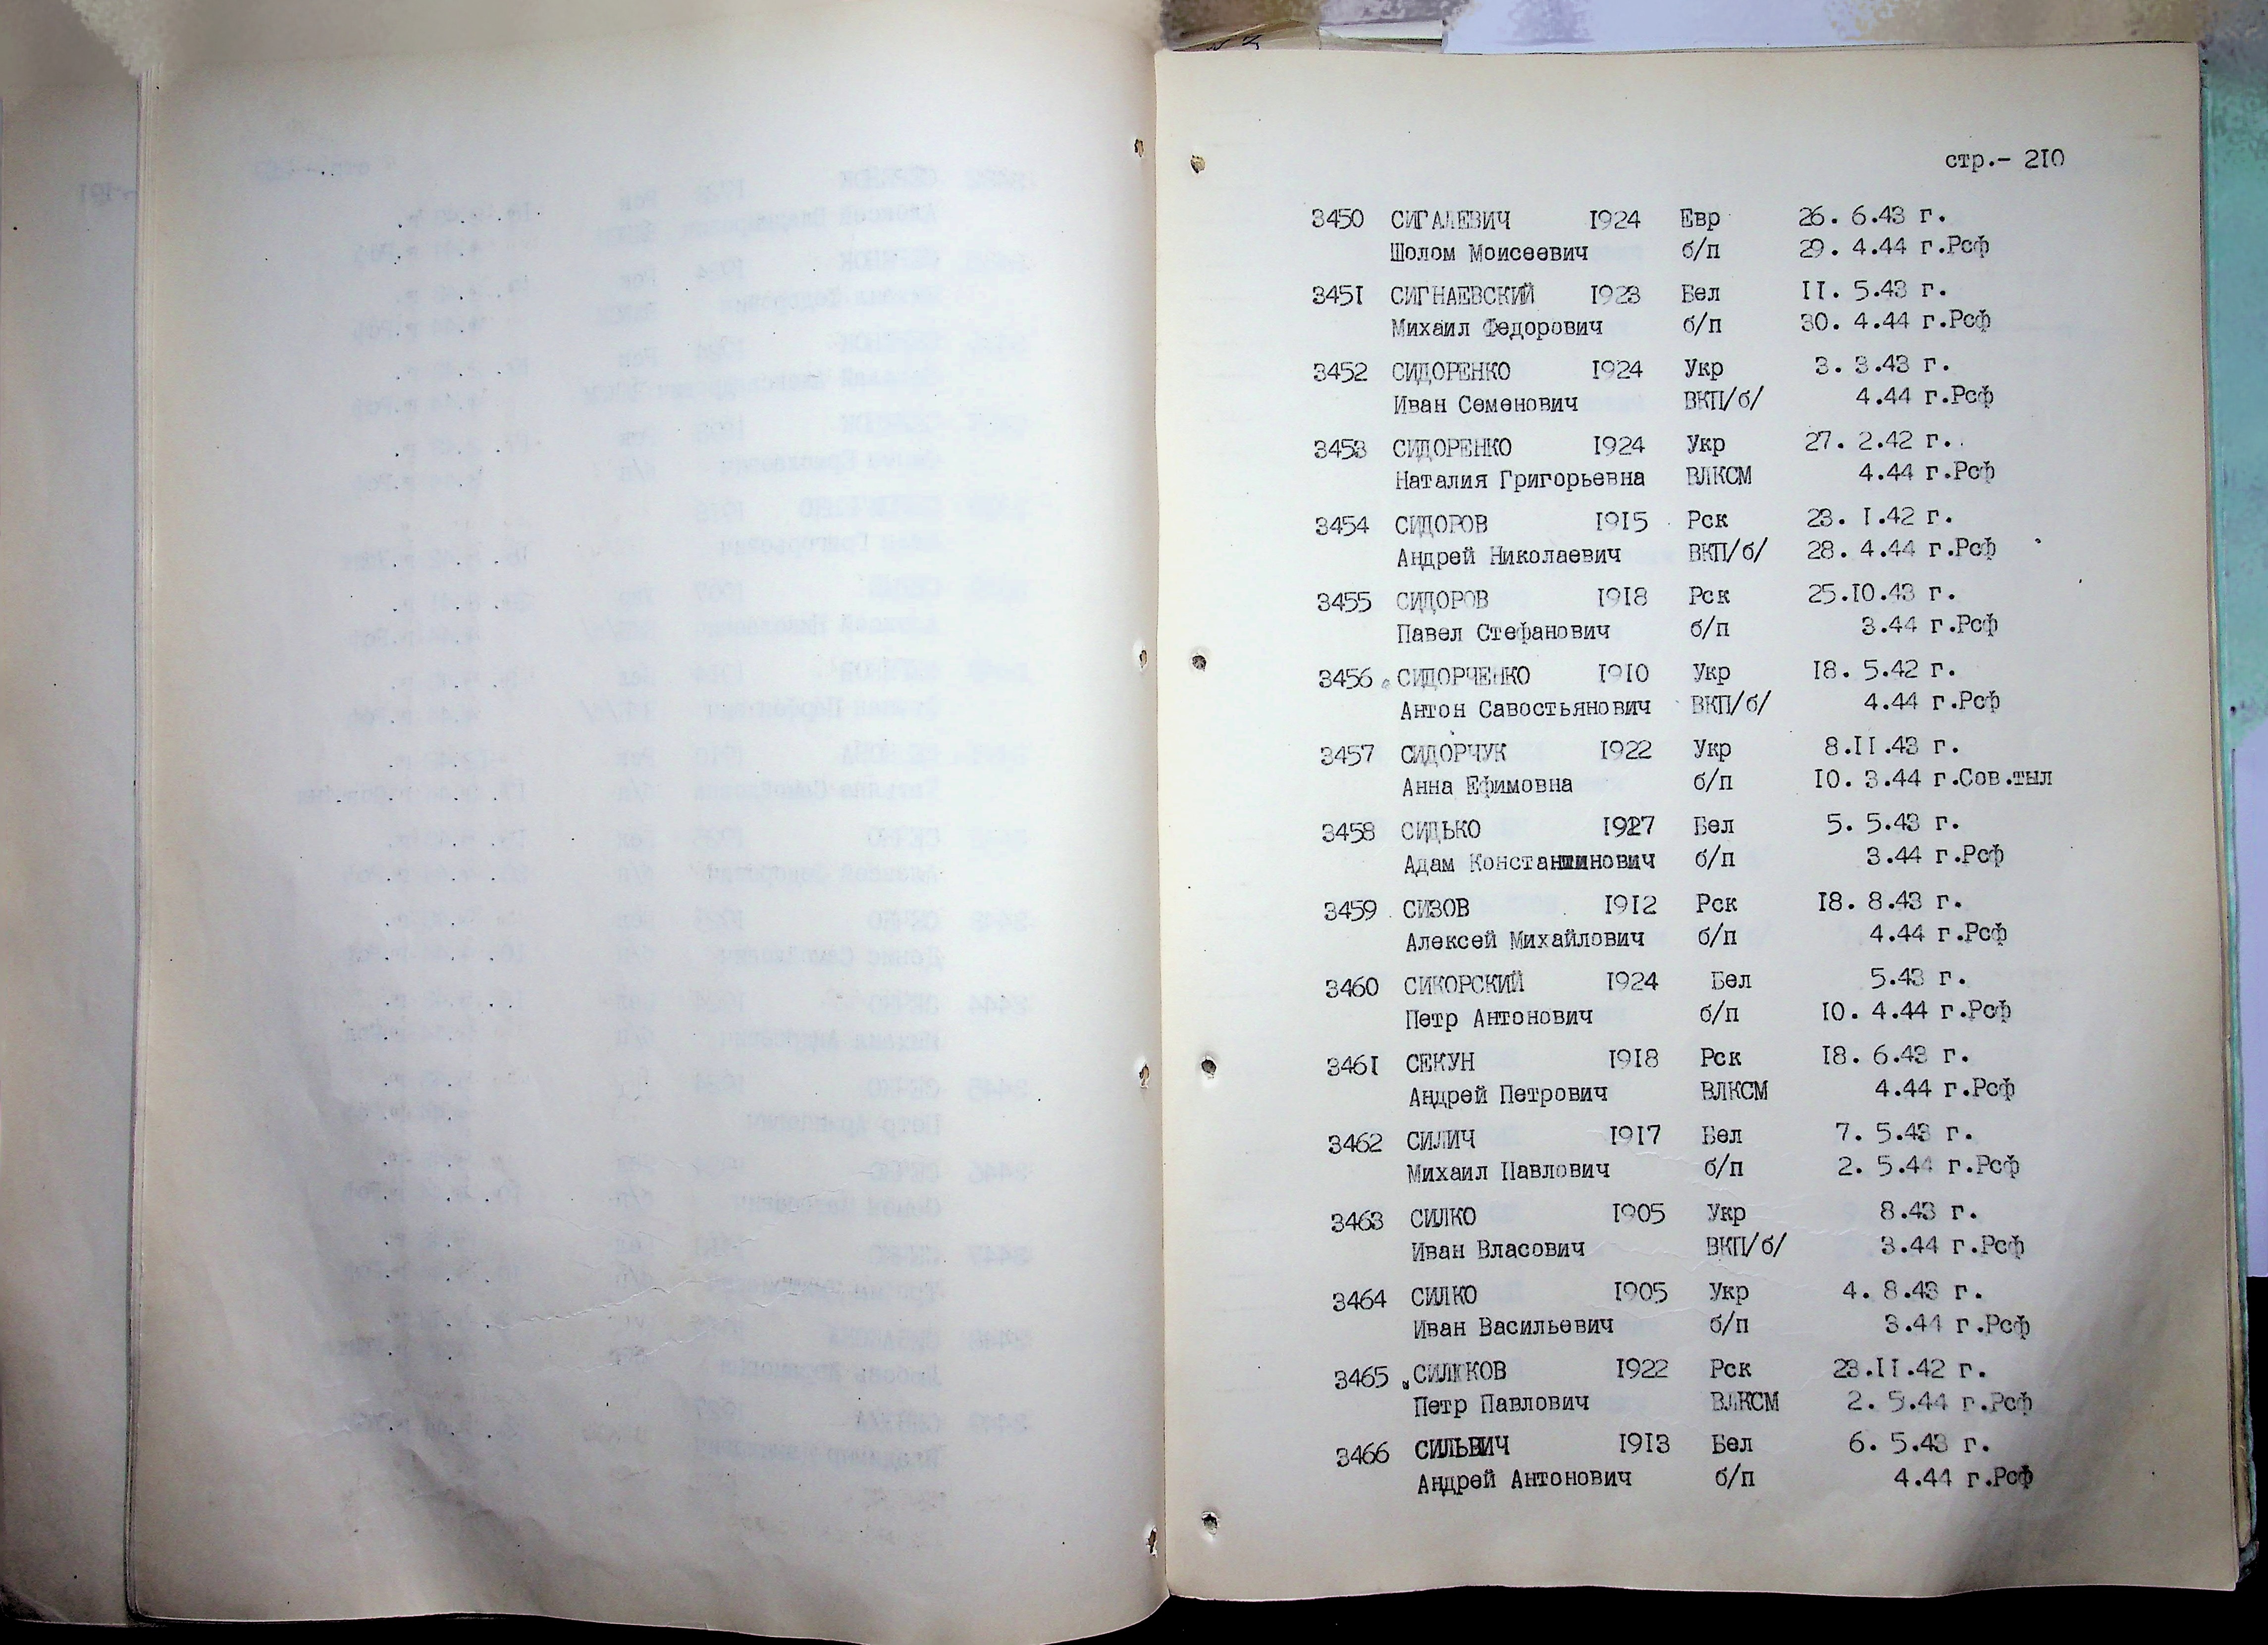 стр.- 210
3450 СИГАЛЕВИЧ 1924 Евр 26. 6.43 г.
Шолом Моисеевич б/п 29. 4.44 г.Рсф
3451 СИГНАЕВСКИЙ 1923 Бел II. 5.43 г.
Михаил Федорович б/п 30. 4.44 г.Рсф
3452 СИДОРЕНКО 1924 Укр 3. 3.43 г.
Иван Семенович ВКП/б/ 4.44 г.Рсф
3453 СИДОРЕНКО 1924 Укр 27. 2.42 г.
Наталия Григорьевна ВЛКСМ 4.44 г.Рсф
3454 СИДОРОВ 1915 Рск 23. 1.42 г.
Андрей Николаевич ВКП/б/ 28. 4.44 г.Рсф
3455 СИДОРОВ 1918 Рск 25.10.43 г.
Павел Стефанович б/п 3.44 г.Рсф
3456 СИДОРЧЕНКО 1910 Укр 18. 5.42 г.
Антон Савостьянович ВКП/б/ 4.44 г.Рсф
3457 СИДОРЧУК 1922 Укр 8.II.43 г.
Анна Ефимовна б/п 10. 3.44 г.Сов.тыл
3458 СИДЬКО 1927 Бел 5. 5.43 г.
Адам Константинович б/п 3.44 г.Рсф
3459 СИЗОВ 1912 Рск 18. 8.43 г.
Алексей Михайлович б/п 4.44 г.Рсф
3460 СИКОРСКИЙ 1924 Бел 5.43 г.
Петр Антонович б/п 10. 4.44 г.Рсф
3461 СЕКУН 1918 Рск 18. 6.43 г.
Андрей Петрович ВЛКСМ 4.44 г.Рсф
3462 СИЛИЧ 1917 Бел 7. 5.43 г.
Михаил Павлович б/п 2. 5.44 г.Рсф
3463 СИЛКО 1905 Укр 8.43 г.
Иван Власович ВКП/б/ 3.44 г.Рсф
3464 СИЛКО 1905 Укр 4. 8.43 г.
Иван Васильевич б/п 3.44 г.Рсф
3465 1922 Рск 23.II.42 г.
Петр Павлович ВЛКСМ 2. 5.44 г.Рсф
3466 1913 Бел 6. 5.43 г.
Андрей Антонович б/п 4.44 г.Рсф